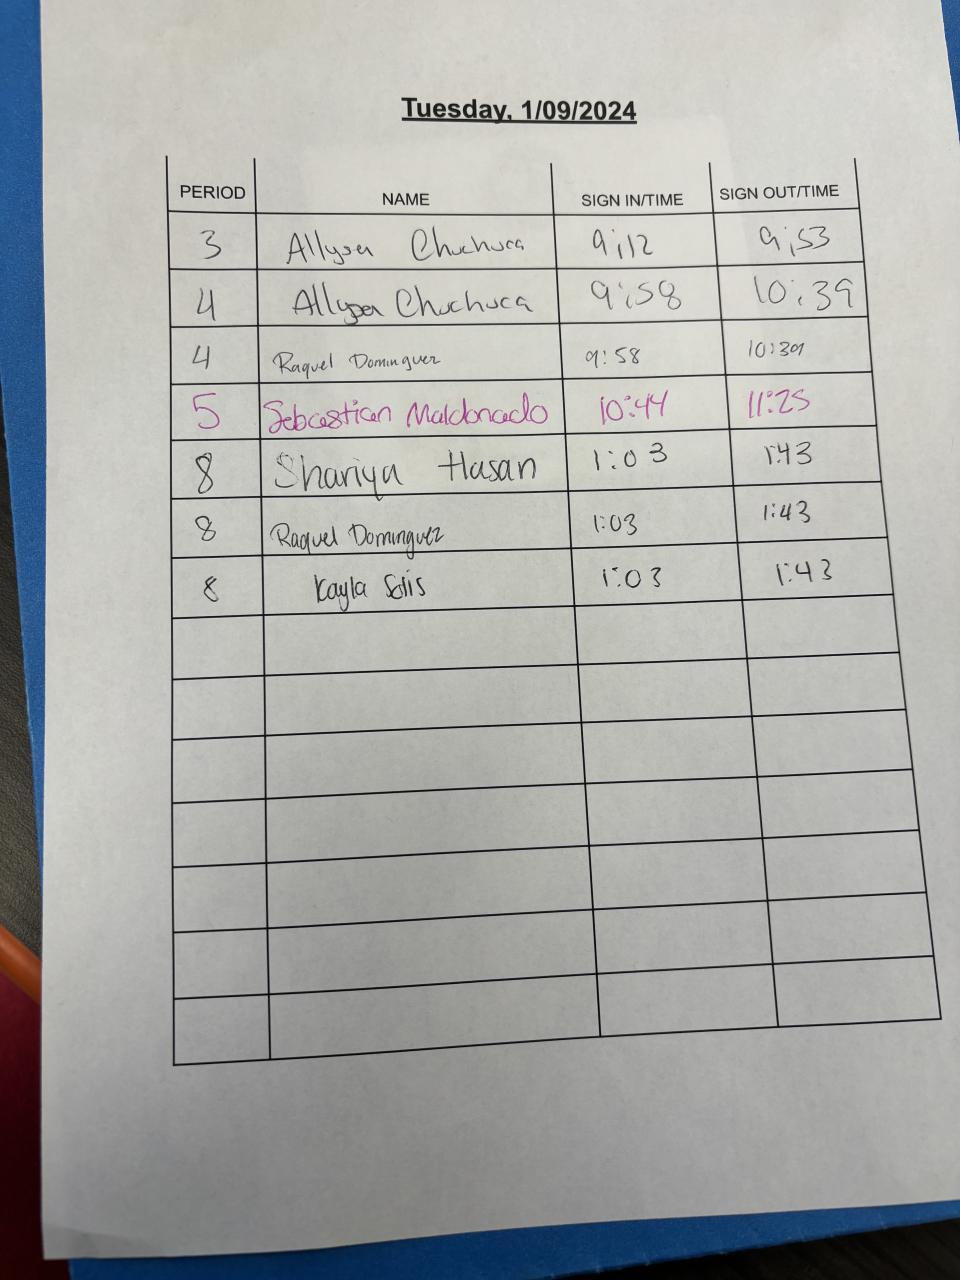 Tuesday, 1/09/2024
PERIOD NAME SIGN IN/TIME SIGN OUT/TIME
3 Allysa Chuchuca 9:12 9:53
4 Allysa Chuchuca 9:58 10:39
4 Raquel Dominguez 9:58 10:39
5 Sebastian Maldonado 10:44 11:25
8 Shariya Hasan 1:03 1:43
8 Raquel Dominguez 1:03 1:43
8 Kayla Solis 1:03 1:43